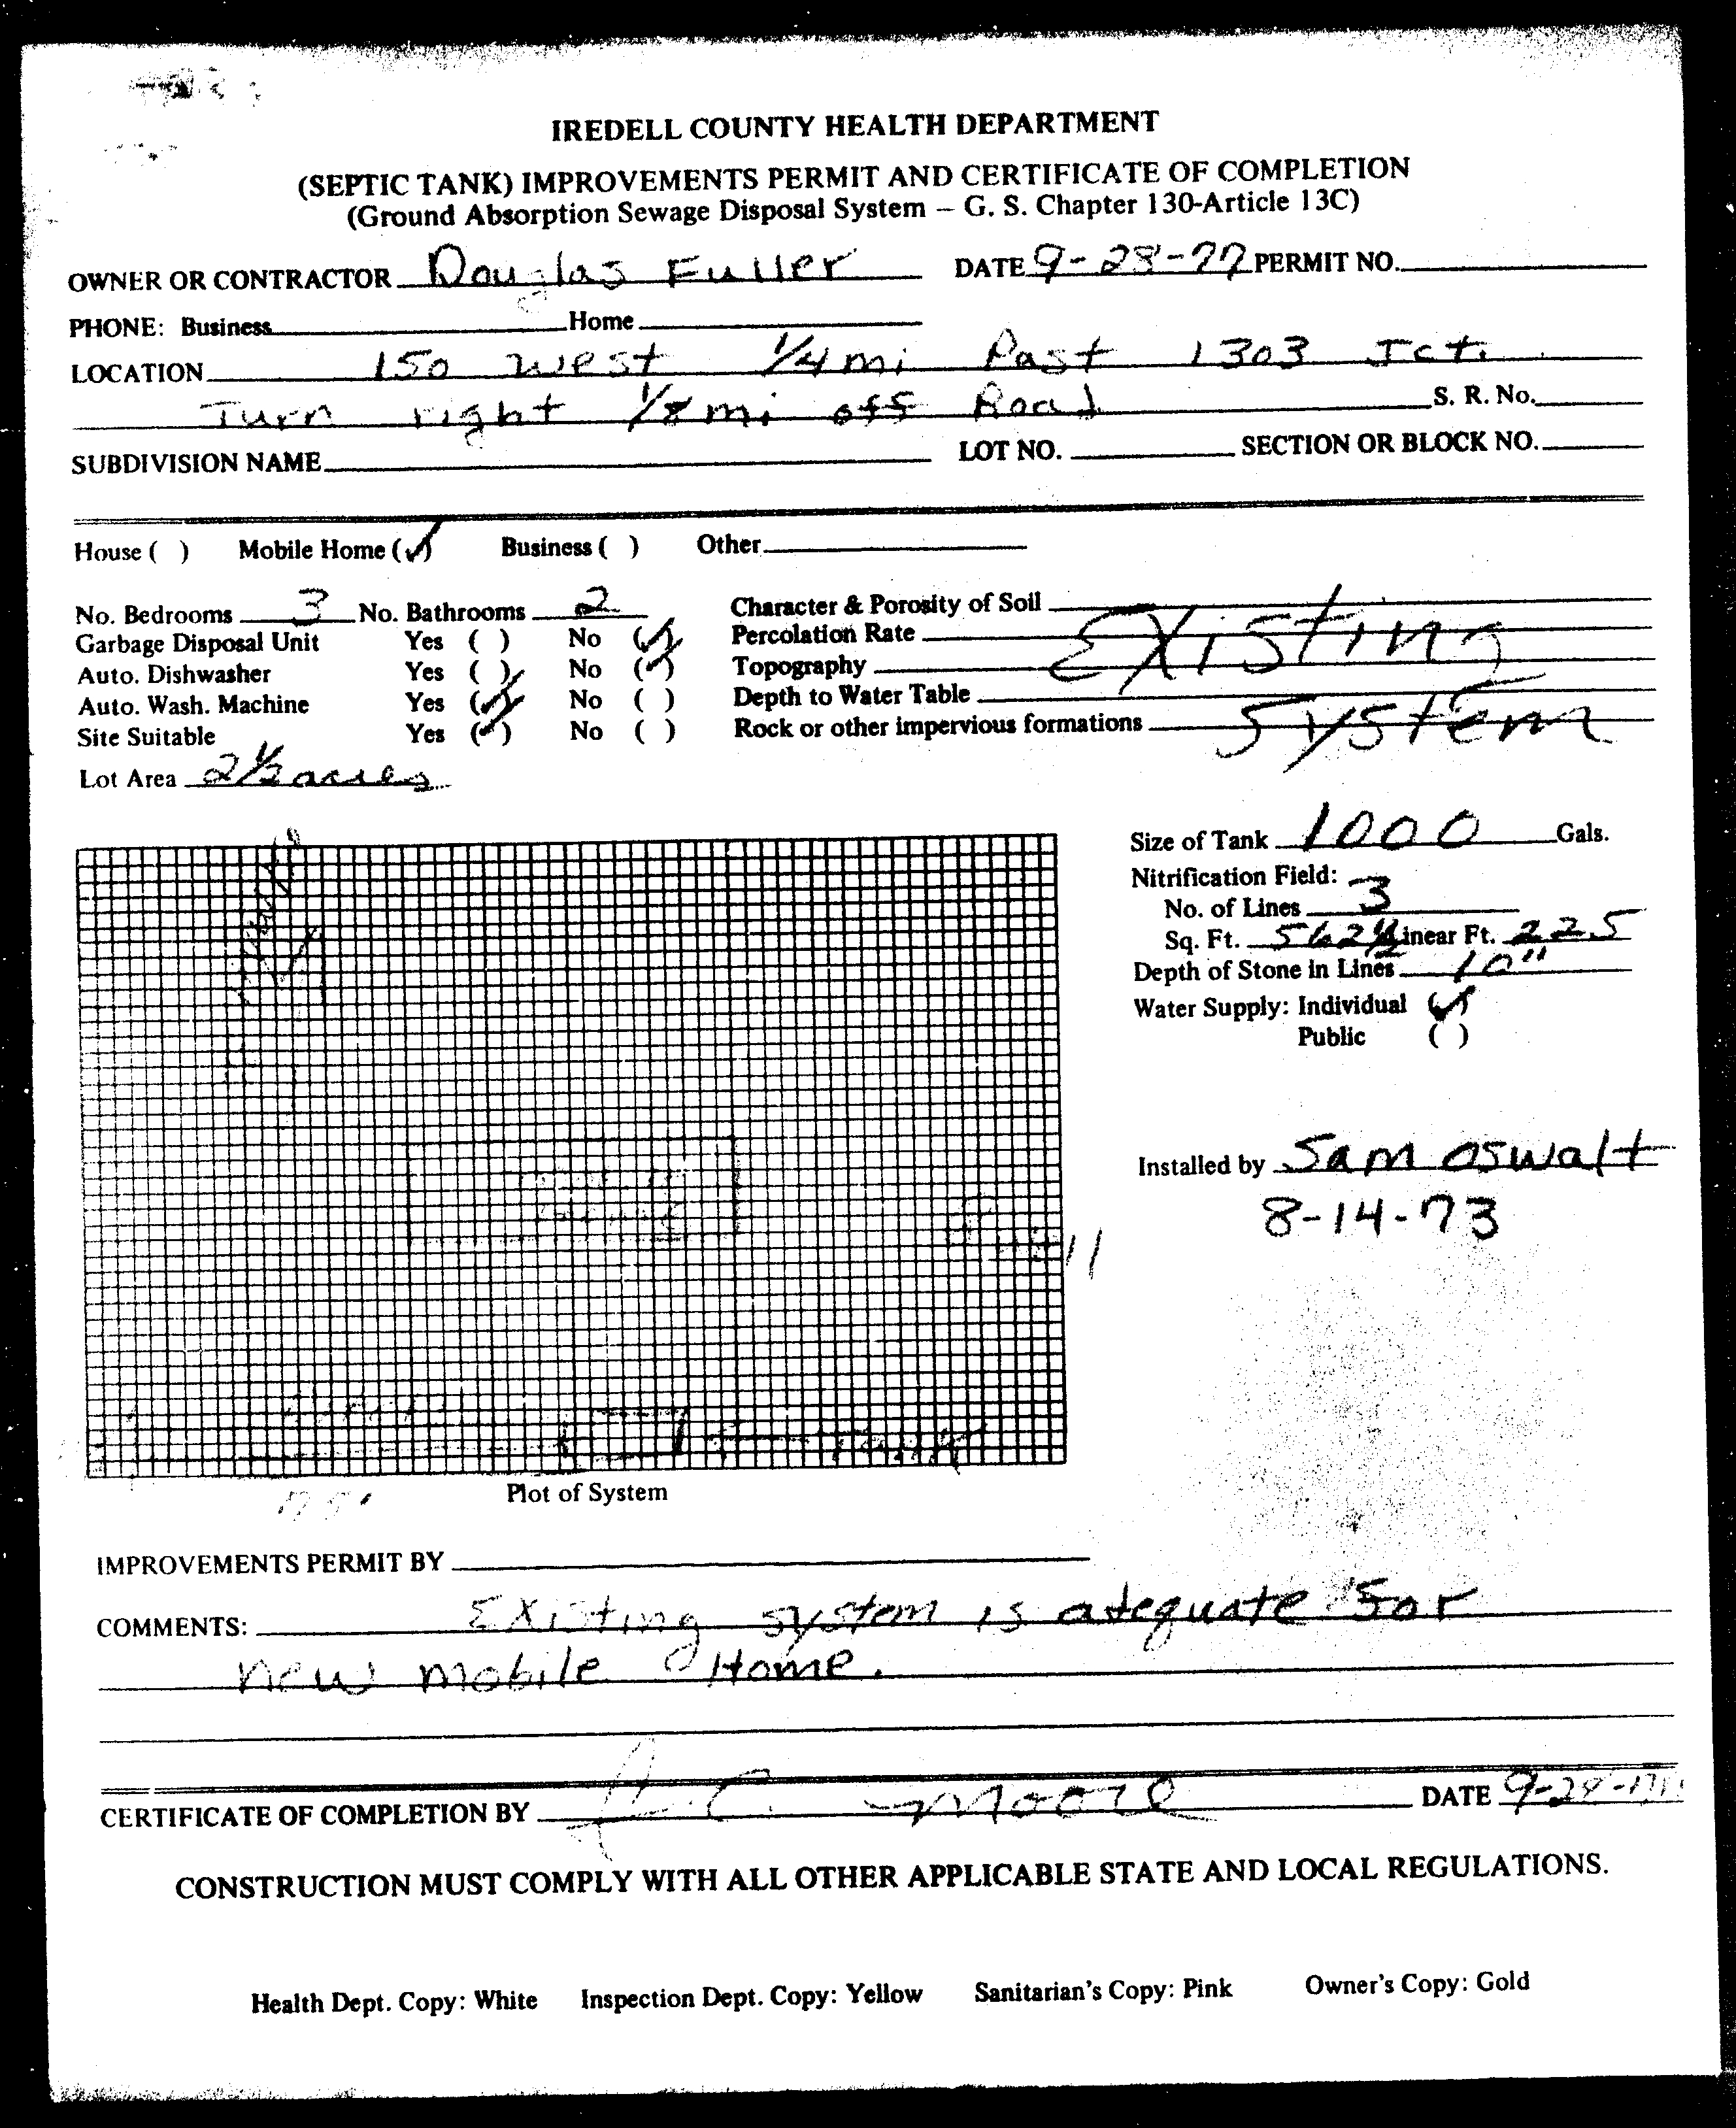 IREDELL COUNTY HEALTH DEPARTMENT
(SEPTIC TANK) IMPROVEMENTS PERMIT AND CERTIFICATE OF COMPLETION
(Ground Absorption Sewage Disposal System – G. S. Chapter 130-Article 13C)
OWNER OR CONTRACTOR Douglas Fuller DATE 9-28-77 PERMIT NO.
PHONE: Business Home
LOCATION 150 West 1/4 mi Past 1303 Jct.
Turn right 1/8 mi off Road S. R. No.
SUBDIVISION NAME LOT NO. SECTION OR BLOCK NO.
House ( ) Mobile Home (✓) Business ( ) Other
No. Bedrooms 3 No. Bathrooms 2
Garbage Disposal Unit Yes ( ) No (✓)
Auto. Dishwasher Yes ( ) No (✓)
Auto. Wash. Machine Yes (✓) No ( )
Site Suitable Yes (✓) No ( )
Lot Area 2 1/2 acres
Character & Porosity of Soil
Percolation Rate Existing
Topography
Depth to Water Table
Rock or other impervious formations System
Size of Tank 1000 Gals.
Nitrification Field:
No. of Lines 3
Sq. Ft. 562 1/2 Linear Ft. 225
Depth of Stone in Lines 10"
Water Supply: Individual (✓)
Public ( )
Installed by Sam Oswalt
8-14-73
Plot of System
IMPROVEMENTS PERMIT BY
COMMENTS: Existing system is adequate for
new mobile Home.
CERTIFICATE OF COMPLETION BY Moore DATE 9-28-77
CONSTRUCTION MUST COMPLY WITH ALL OTHER APPLICABLE STATE AND LOCAL REGULATIONS.
Health Dept. Copy: White Inspection Dept. Copy: Yellow Sanitarian's Copy: Pink Owner's Copy: Gold